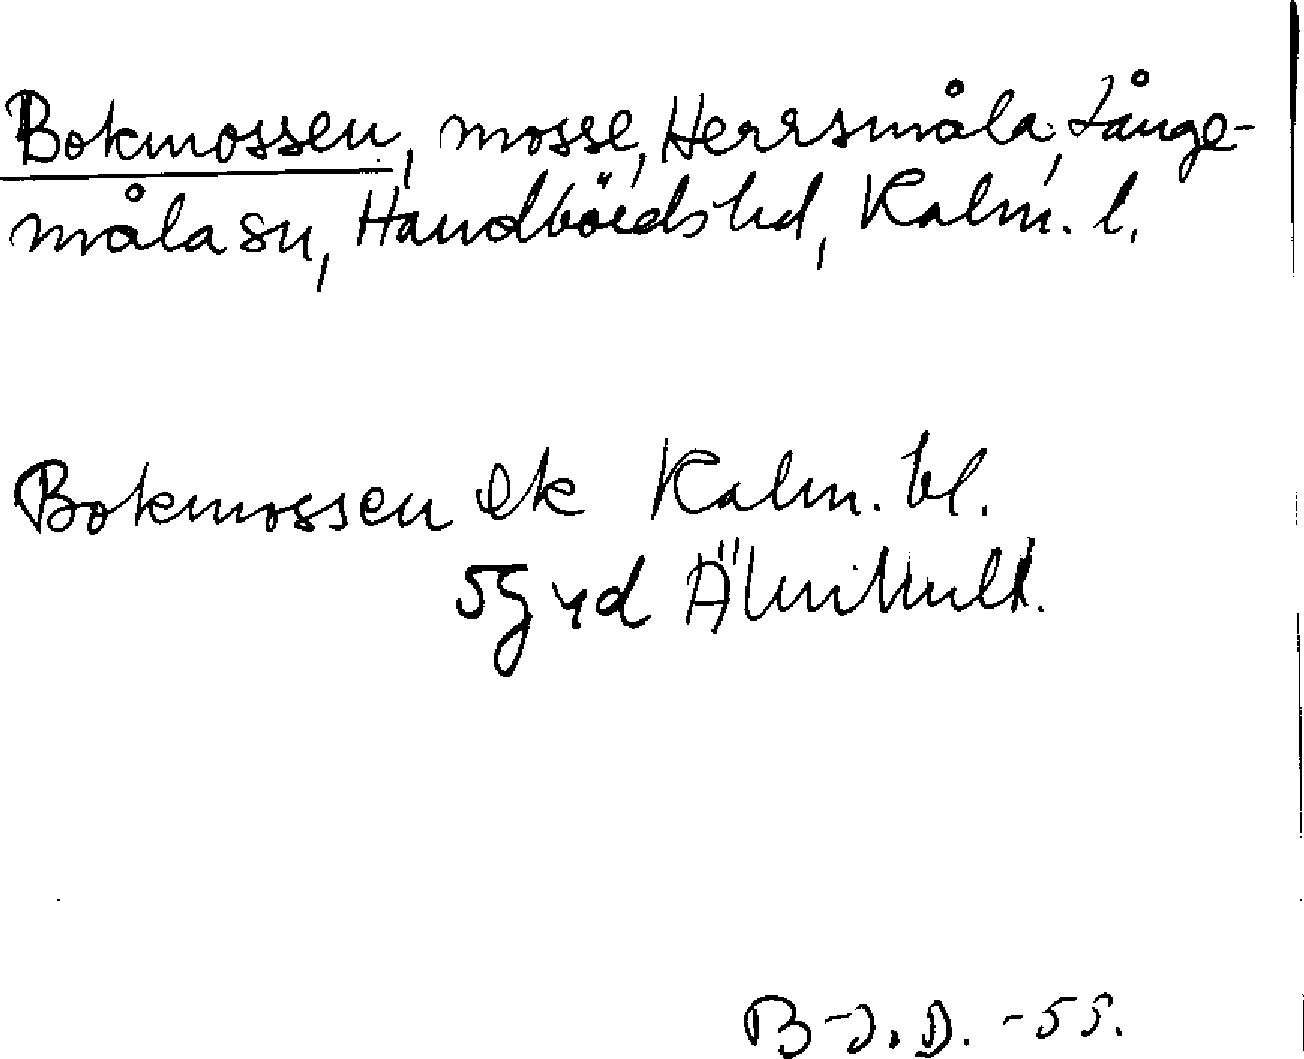 Bokmossen, mosse, Herrsmåla, Långe-
måla sn, Handbörds hd, Kalm. l.
Bokmossen ek Kalm. bl.
5g vd Älmhult.
B-J. D. -55.